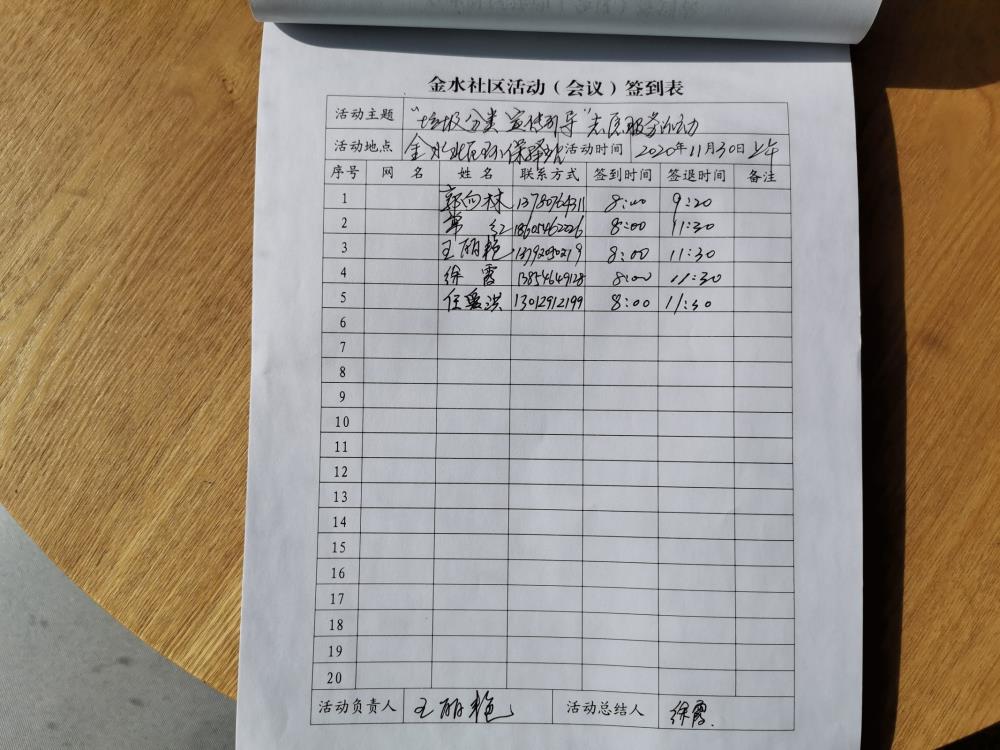 金水社区活动（会议）签到表
活动主题 "垃圾分类宣传引导"志愿服务活动
活动地点 金水社区环保驿站 活动时间 2020年11月30日上午
序号 网 名 姓 名 联系方式 签到时间 签退时间 备注
1 郭向林 8:00 9:20
2 常红 18605462226 8:00 11:30
3 王丽艳 8:00 11:30
4 徐霞 13854649128 8:00 11:30
5 任爱洪 13012912199 8:00 11:30
6
7
8
9
10
11
12
13
14
15
16
17
18
19
20
活动负责人 王丽艳 活动总结人 徐霞